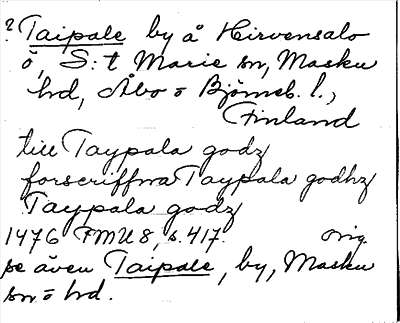 ? Taipale by å Hirvensalo
ö, S:t Marie sn, Masku
hd, Åbo o Björneb. l.,
Finland
till Taypala godz
forscriffwa Taypala godhz
Taypala godz
1476 FMU 8, s. 417. orig.
se även Taipale, by, Masku
sn o hd.